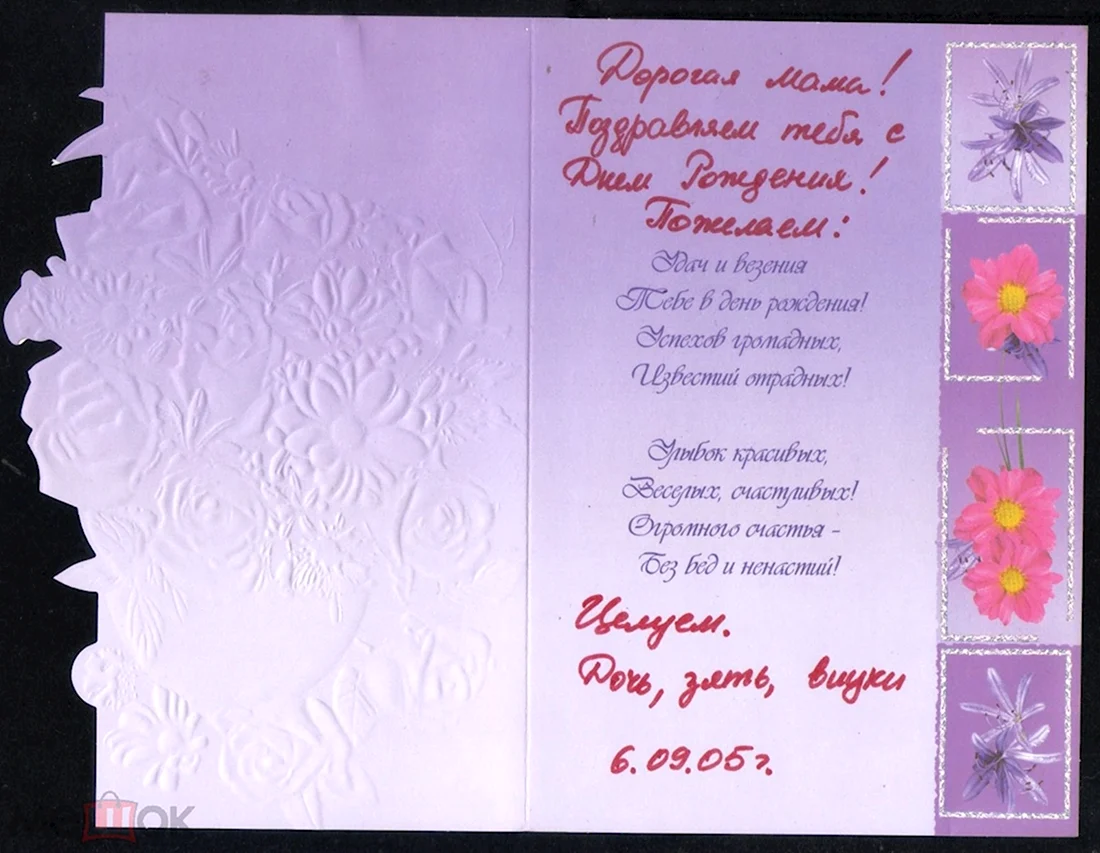 Дорогая мама!
Поздравляем тебя с
Днем Рождения!
Пожелаем:
Удач и везения
Тебе в день рождения!
Успехов громадных,
Известий отрадных!
Улыбок красивых,
Веселых, счастливых!
Огромного счастья –
Без бед и ненастий!
Целуем.
Дочь, зять, внуки
6.09.05г.